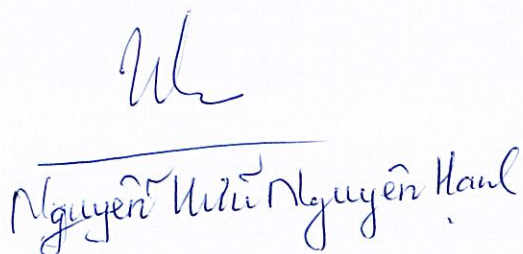 Nguyễn Hữu Nguyên Hạnh